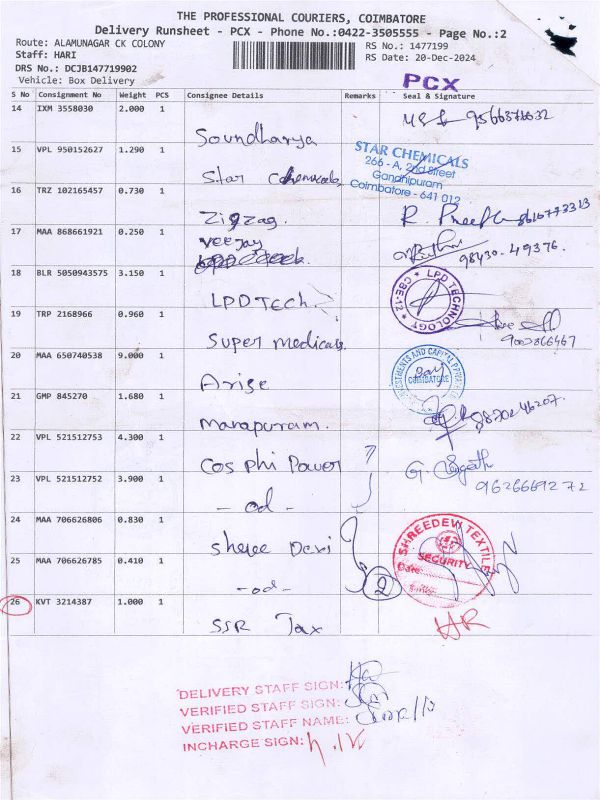 THE PROFESSIONAL COURIERS, COIMBATORE
Delivery Runsheet - PCX - Phone No.:0422-3505555 - Page No.:2
Route: ALAMUNAGAR CK COLONY
RS No.: 1477199
Staff: HARI
RS Date: 20-Dec-2024
DRS No.: DCJB147719902
Vehicle: Box Delivery
PCX
S No Consignment No Weight PCS Consignee Details Remarks Seal & Signature
14 IXM 3558030 2.000 1 Soundharya
15 VPL 950152627 1.290 1 Star Chemicals
STAR CHEMICALS
266 - A, 2nd Street
Gandhipuram
Coimbatore - 641 012
16 TRZ 102165457 0.730 1 Zigzag.
17 MAA 868661921 0.250 1 Veejay 98430-49376.
18 BLR 5050943575 3.150 1 LPD Tech.
LPD TECHNOLOGY CBE-12
19 TRP 2168966 0.960 1 Super medicals
20 MAA 650740538 9.000 1 Arise
COIMBATORE
21 GMP 845270 1.680 1 Manapuram.
22 VPL 521512753 4.300 1 Cos Phi Power
23 VPL 521512752 3.900 1 - od - 9626669272
24 MAA 706626806 0.830 1 Shree Devi
SHREEDEVI TEXTILE
SECURITY
Date:
25 MAA 706626785 0.410 1 - od - 2
26 KVT 3214387 1.000 1 SSR Tax
DELIVERY STAFF SIGN:
VERIFIED STAFF SIGN:
VERIFIED STAFF NAME:
INCHARGE SIGN: